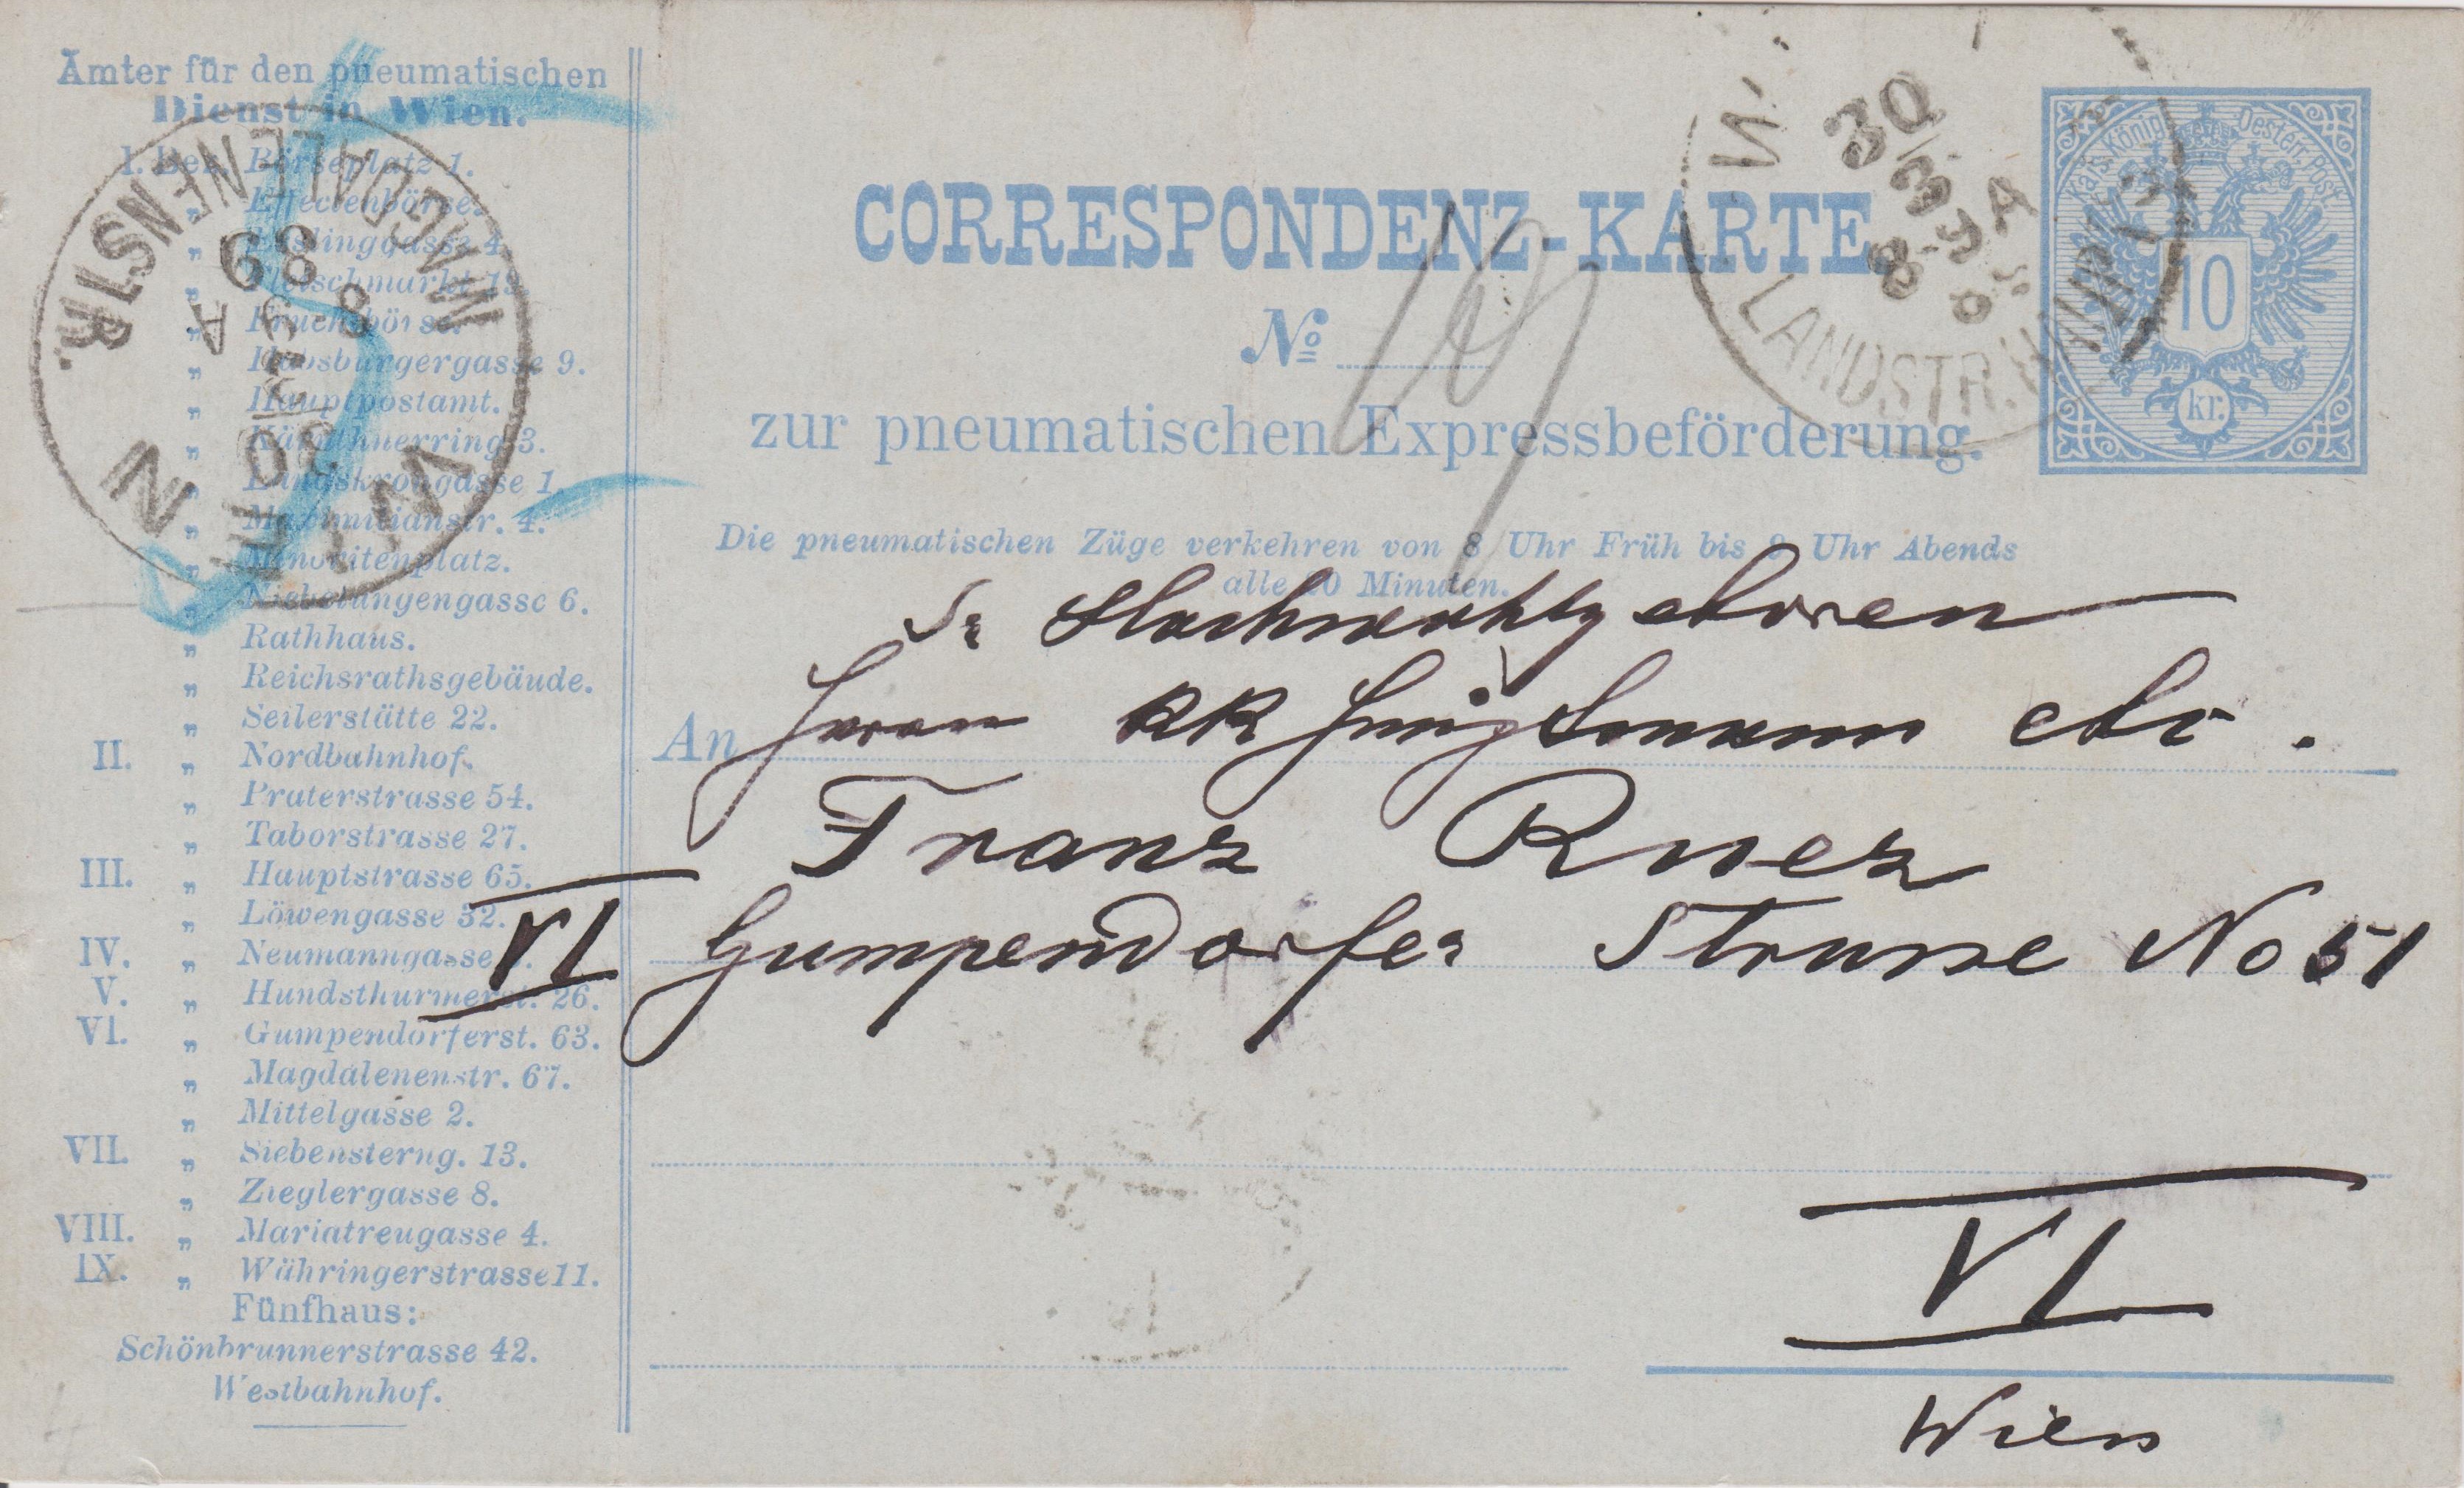 Ämter für den pneumatischen
Dienst in Wien.
I. Bez. Börseplatz 1.
„ Effectenbörse.
„ Esslinggasse 4.
„ Fleischmarkt 19.
„ Fruchtbörse.
„ Habsburgergasse 9.
„ Hauptpostamt.
„ Kärnthnerring 3.
„ Landskrongasse 1.
„ Maximilianstr. 4.
„ Minoritenplatz.
„ Nibelungengasse 6.
„ Rathhaus.
„ Reichsrathsgebäude.
„ Seilerstätte 22.
II. „ Nordbahnhof.
„ Praterstrasse 54.
„ Taborstrasse 27.
III. „ Hauptstrasse 65.
„ Löwengasse 32.
IV. „ Neumanngasse
V. „ Hundsthurmerst. 26.
VI. „ Gumpendorferst. 63.
„ Magdalenenstr. 67.
„ Mittelgasse 2.
VII. „ Siebensterng. 13.
„ Zieglergasse 8.
VIII. „ Mariatreugasse 4.
IX. „ Währingerstrasse 11.
Fünfhaus:
Schönbrunnerstrasse 42.
Westbahnhof.
WIEN
MAGDALENENSTR.
30
3
8 A
89
CORRESPONDENZ-KARTE
No
19
zur pneumatischen Expressbeförderung.
Die pneumatischen Züge verkehren von 8 Uhr Früh bis 9 Uhr Abends
alle 20 Minuten.
LANDSTR. HAUPTSTR.
30
Kais. Königl. Oesterr. Post
10
kr.
Sr Hochwohlgeboren
An Herrn KK
Franz Ruez
VI Gumpendorfer Strasse No 51
VI
Wien